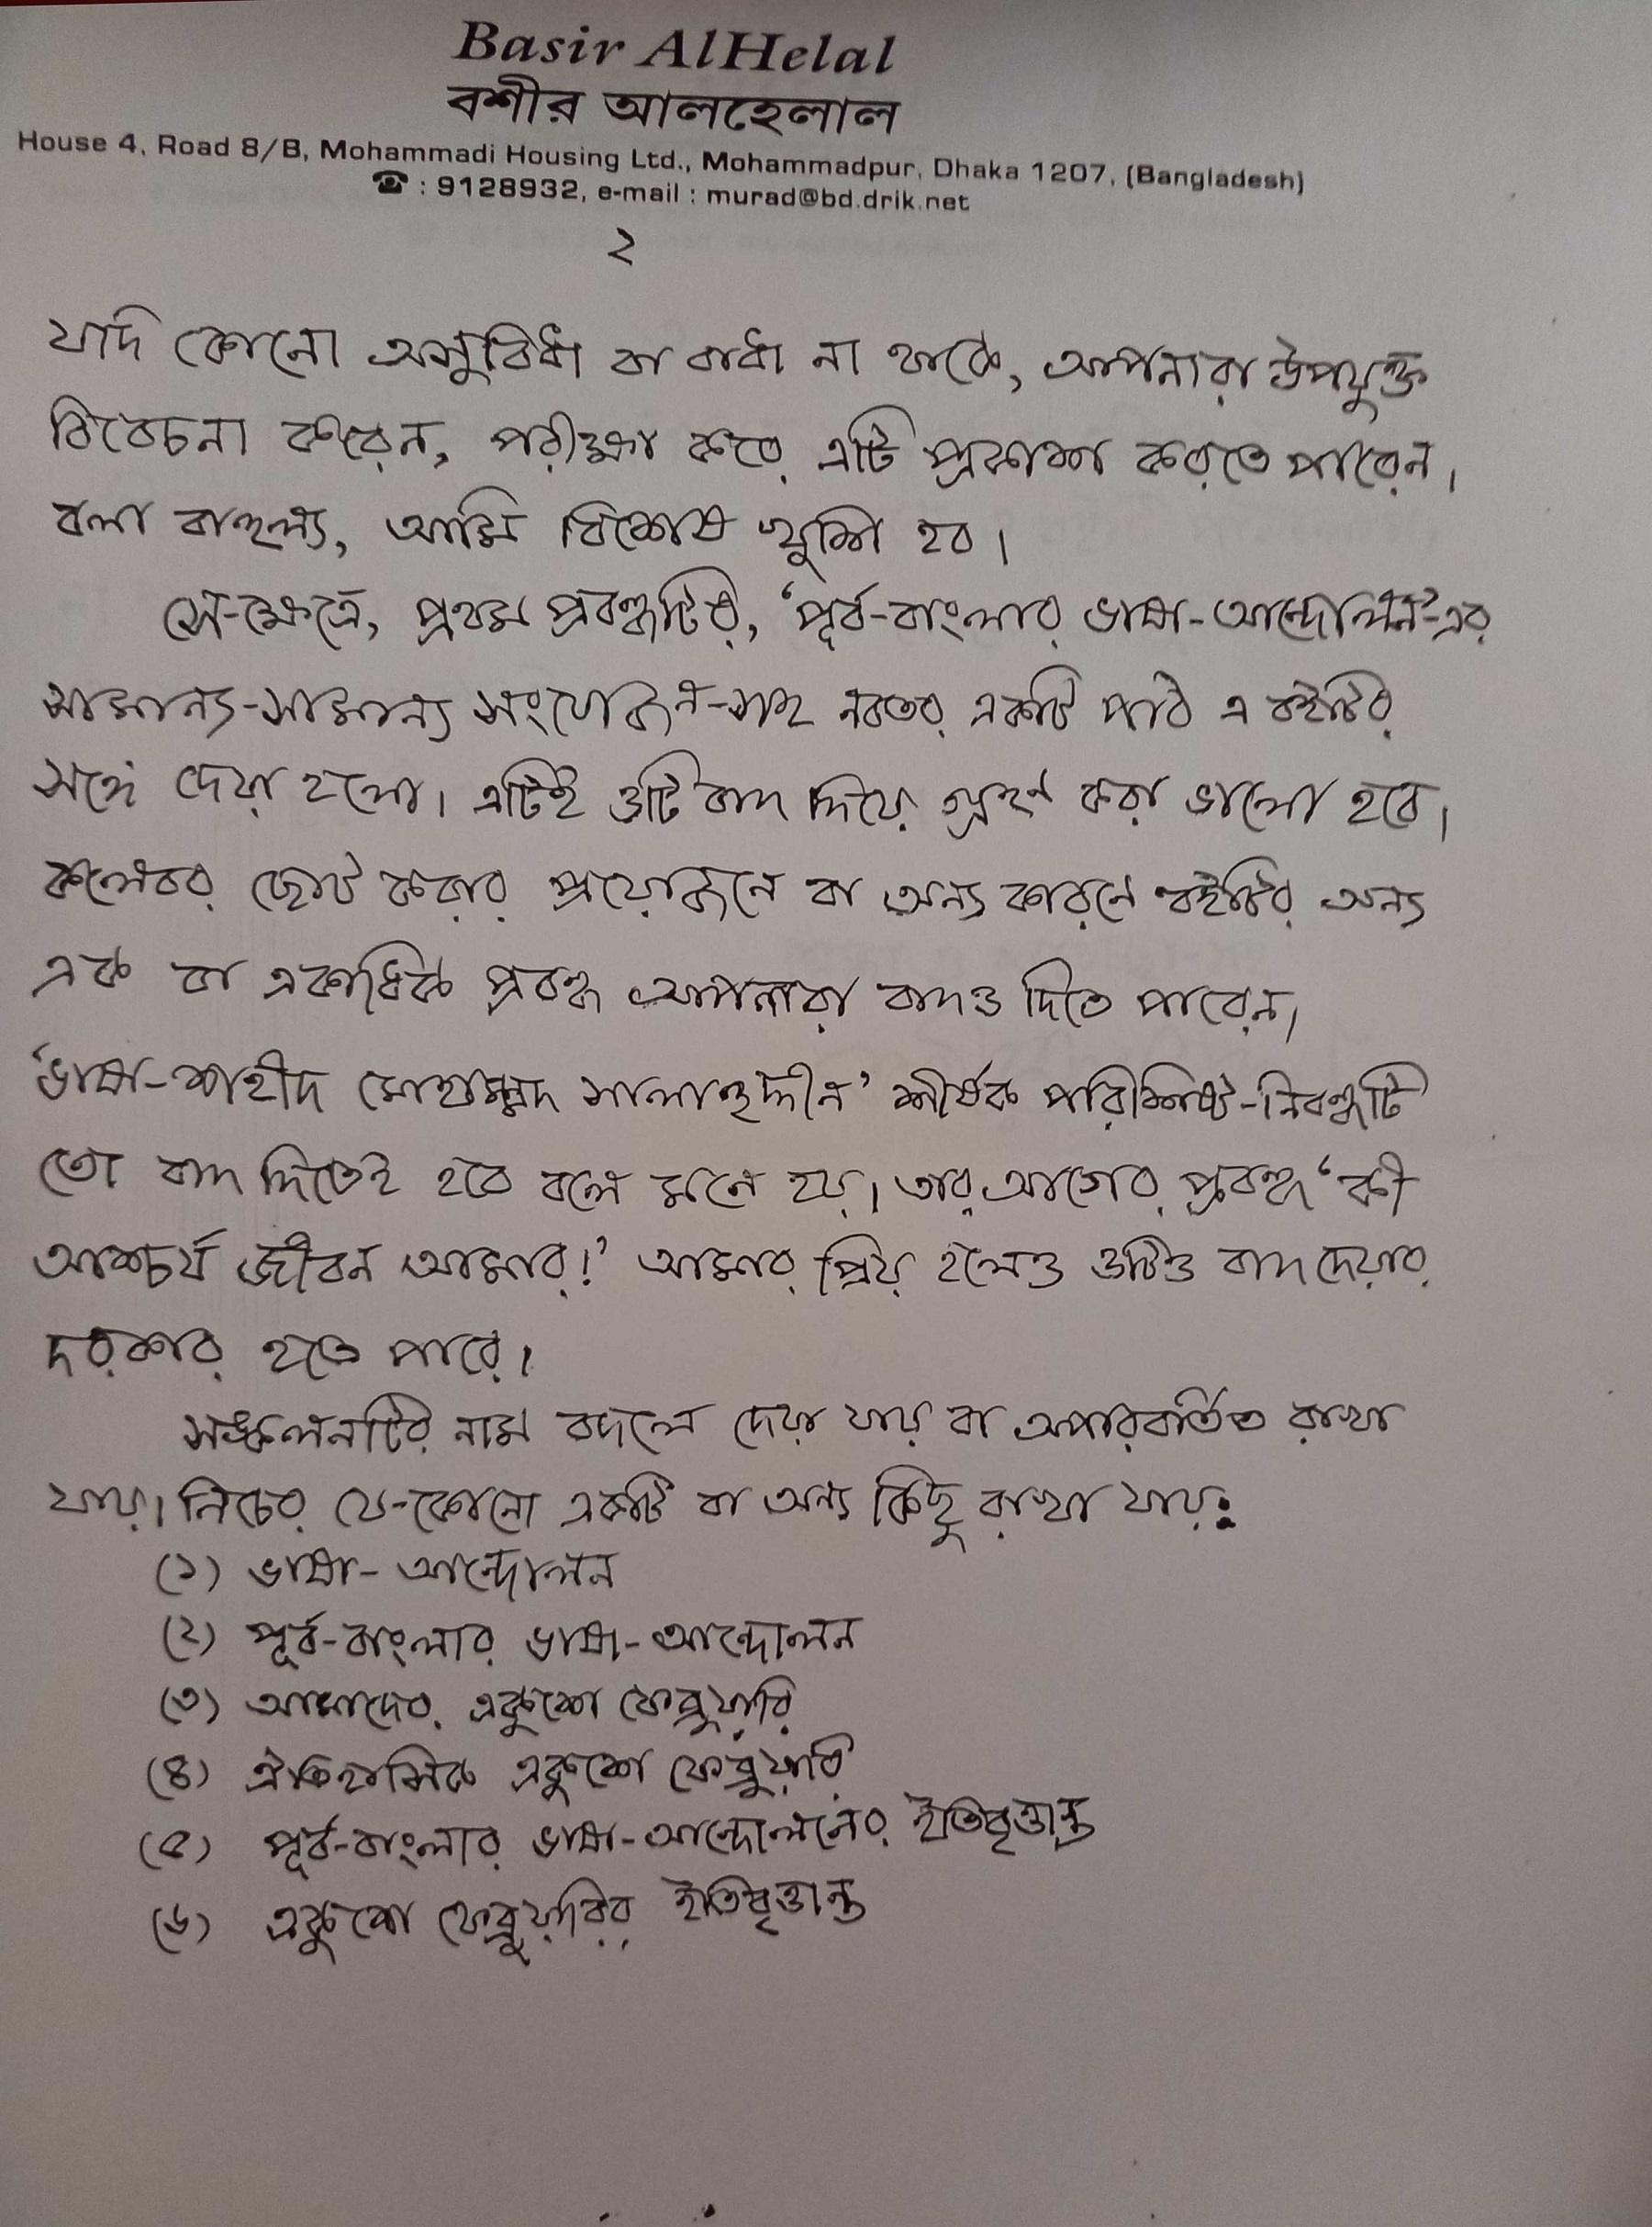 Basir AlHelal
বশীর আলহেলাল
House 4, Road 8/B, Mohammadi Housing Ltd., Mohammadpur, Dhaka 1207, (Bangladesh)
☎ : 9128932, e-mail : murad@bd.drik.net
২
যদি কোনো অসুবিধা বা বাধা না থাকে, আপনারা উপযুক্ত
বিবেচনা করেন, পরীক্ষা করে এটি প্রকাশ করতে পারেন।
বলা বাহুল্য, আমি বিশেষ খুশি হব।
সে-ক্ষেত্রে, প্রথম প্রবন্ধটির, ‘পূর্ব-বাংলার ভাষা-আন্দোলন’-এর
সামান্য-সামান্য সংযোজন-সহ নবতর একটি পাঠ এ বইটির
সঙ্গে দেয়া হলো। এটিই ওটি বাদ দিয়ে গ্রহণ করা ভালো হবে।
কলেবর ছোট করার প্রয়োজনে বা অন্য কারনে বইটির অন্য
এক বা একাধিক প্রবন্ধ আপনারা বাদও দিতে পারেন।
‘ভাষা-শহীদ মোহাম্মদ সালাহুদ্দীন’ শীর্ষক পরিশিষ্ট-নিবন্ধটি
তো বাদ দিতেই হবে বলে মনে হয়। তার আগের প্রবন্ধ ‘কী
আশ্চর্য জীবন আমার!’ আমার প্রিয় হলেও ওটিও বাদ দেয়ার
দরকার হতে পারে।
সঙ্কলনটির নাম বদলে দেয়া যায় বা অপরিবর্তিত রাখা
যায়। নিচের যে-কোনো একটি বা অন্য কিছু রাখা যায়:
(১) ভাষা-আন্দোলন
(২) পূর্ব-বাংলার ভাষা-আন্দোলন
(৩) আমাদের একুশে ফেব্রুয়ারি
(৪) ঐতিহাসিক একুশে ফেব্রুয়ারি
(৫) পূর্ব-বাংলার ভাষা-আন্দোলনের ইতিবৃত্তান্ত
(৬) একুশে ফেব্রুয়ারির ইতিবৃত্তান্ত